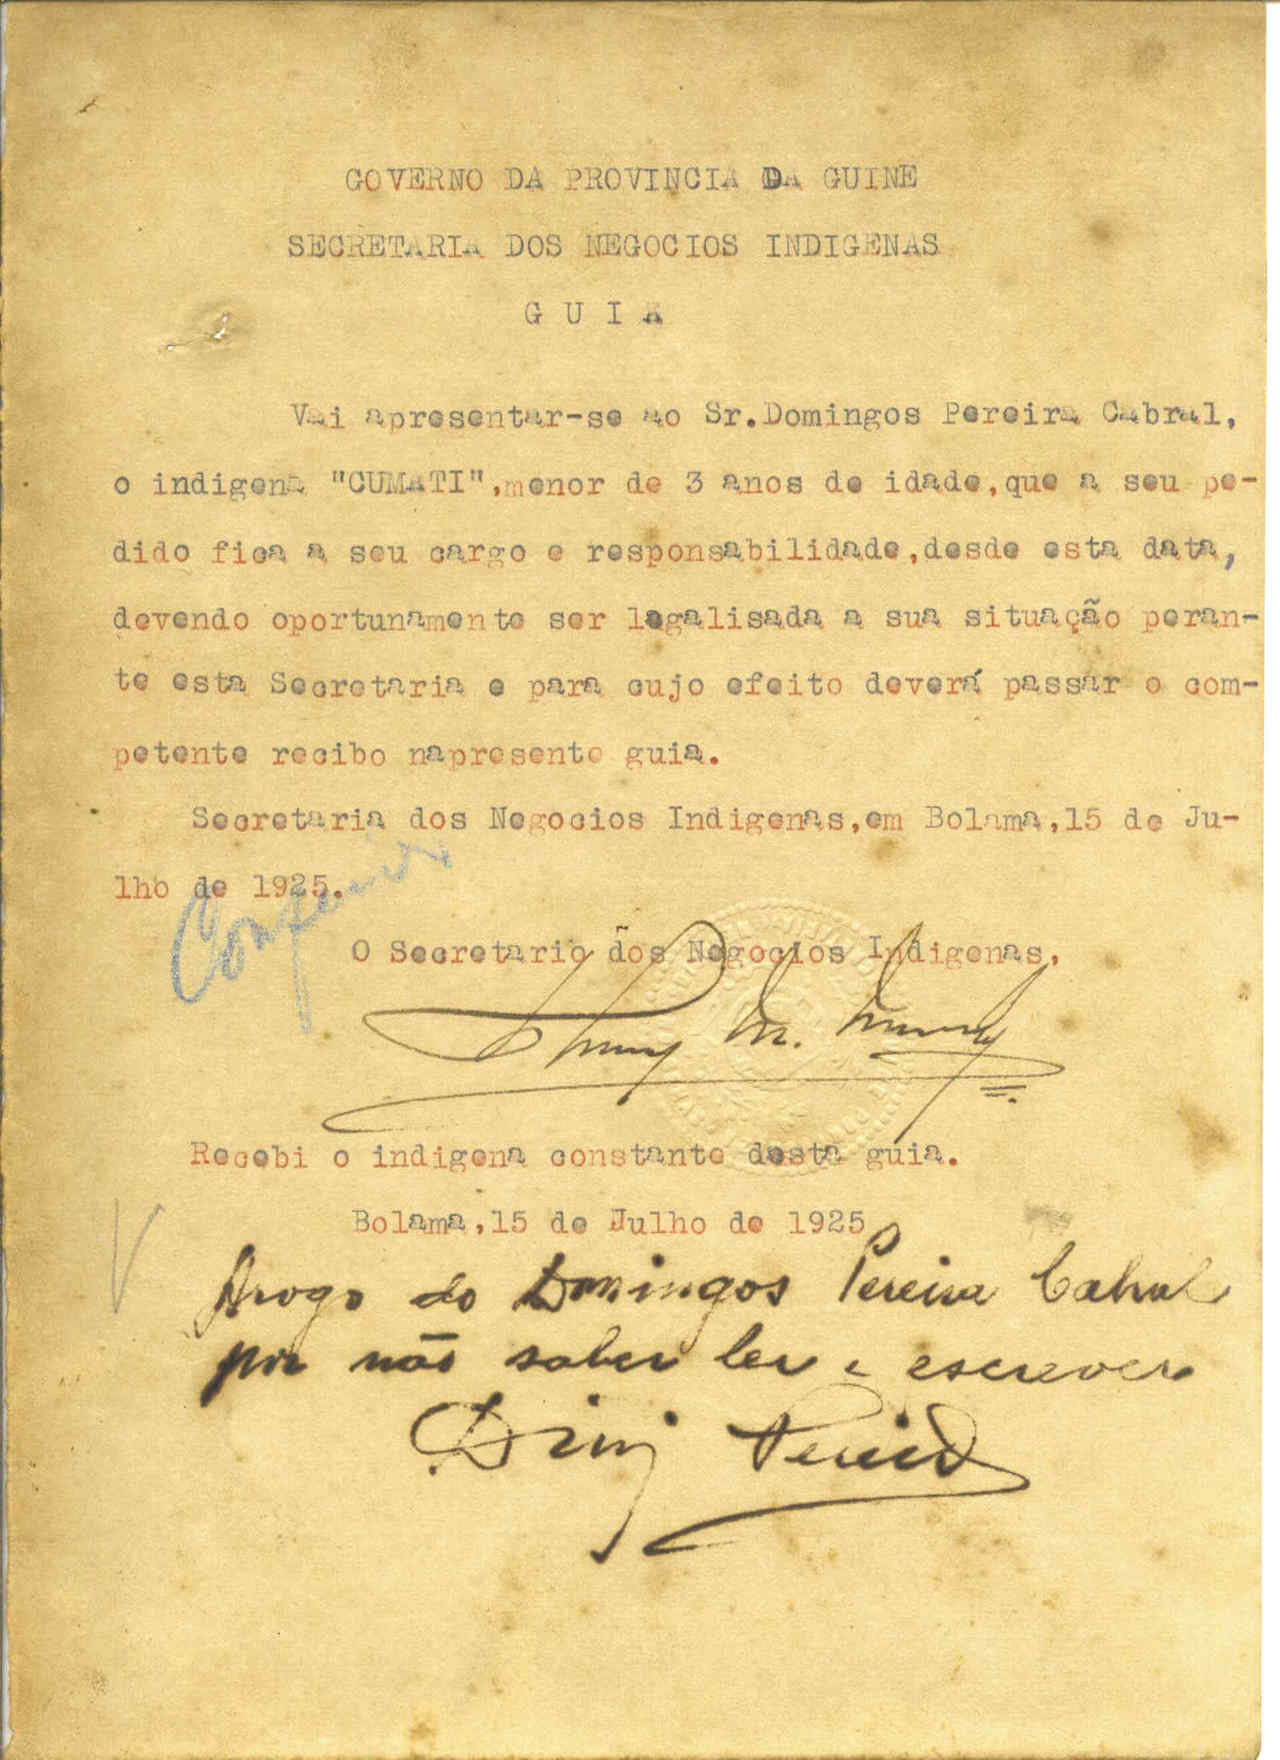 GOVERNO DA PROVINCIA DA GUINE
SECRETARIA DOS NEGOCIOS INDIGENAS
G U I A
Vai apresentar-se ao Sr.Domingos Pereira Cabral,
o indigena "CUMATI",menor de 3 anos de idade,que a seu pe-
dido fica a seu cargo e responsabilidade,desde esta data,
devendo oportunamente ser legalisada a sua situação peran-
te esta Secretaria e para cujo efeito deverá passar o com-
petente recibo napresente guia.
Secretaria dos Negocios Indigenas,em Bolama,15 de Ju-
lho de 1925.
O Secretario dos Negocios Indigenas,
Recebi o indigena constante desta guia.
Bolama,15 de Julho de 1925
Arogo do Domingos Pereira Cabral
por não saber ler e escrever